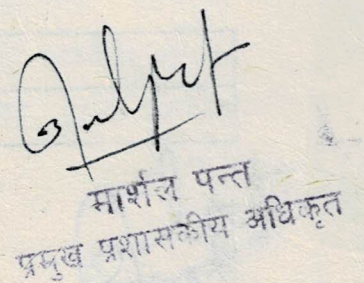 मार्शल पन्त
प्रमुख प्रशासकीय अधिकृत